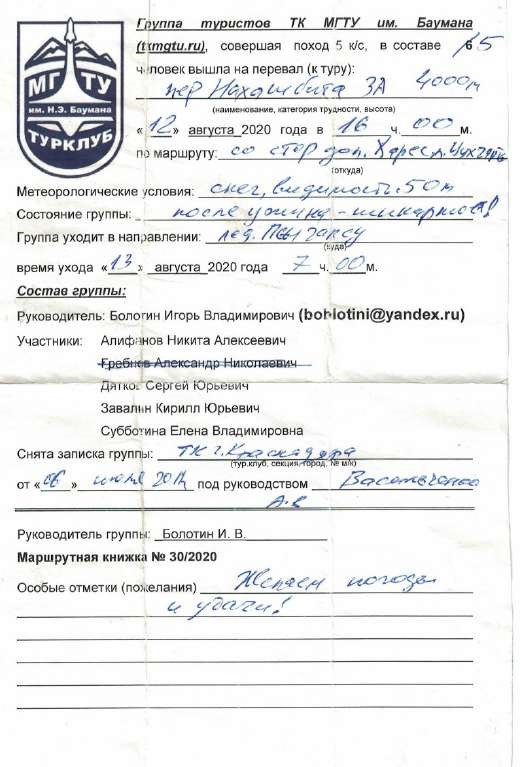 МГТУ
им. Н.Э. Баумана
ТУРКЛУБ
Группа туристов ТК МГТУ им. Баумана
(tkmgtu.ru), совершая поход 5 к/с, в составе 6 5
человек вышла на перевал (к туру):
пер 3А 4000м
(наименование, категория трудности, высота)
«12» августа 2020 года в 16 ч. 00 м.
по маршруту: со стор дол.
(откуда)
Метеорологические условия: снег, видимость 50м
Состояние группы: после ужина - шикарное!
Группа уходит в направлении: лед.
(куда)
время ухода «13» августа 2020 года 7 ч. 00 м.
Состав группы:
Руководитель: Болотин Игорь Владимирович (boblotini@yandex.ru)
Участники: Алифанов Никита Алексеевич
Гребнов Александр Николаевич
Дятков Сергей Юрьевич
Завалын Кирилл Юрьевич
Субботина Елена Владимировна
Снята записка группы: ТК г. Краснодара
(тур.клуб, секция, город, № м/к)
от «06» июля 201 под руководством
А.В
Руководитель группы: Болотин И. В.
Маршрутная книжка № 30/2020
Особые отметки (пожелания) Желаем погоды
и удачи!